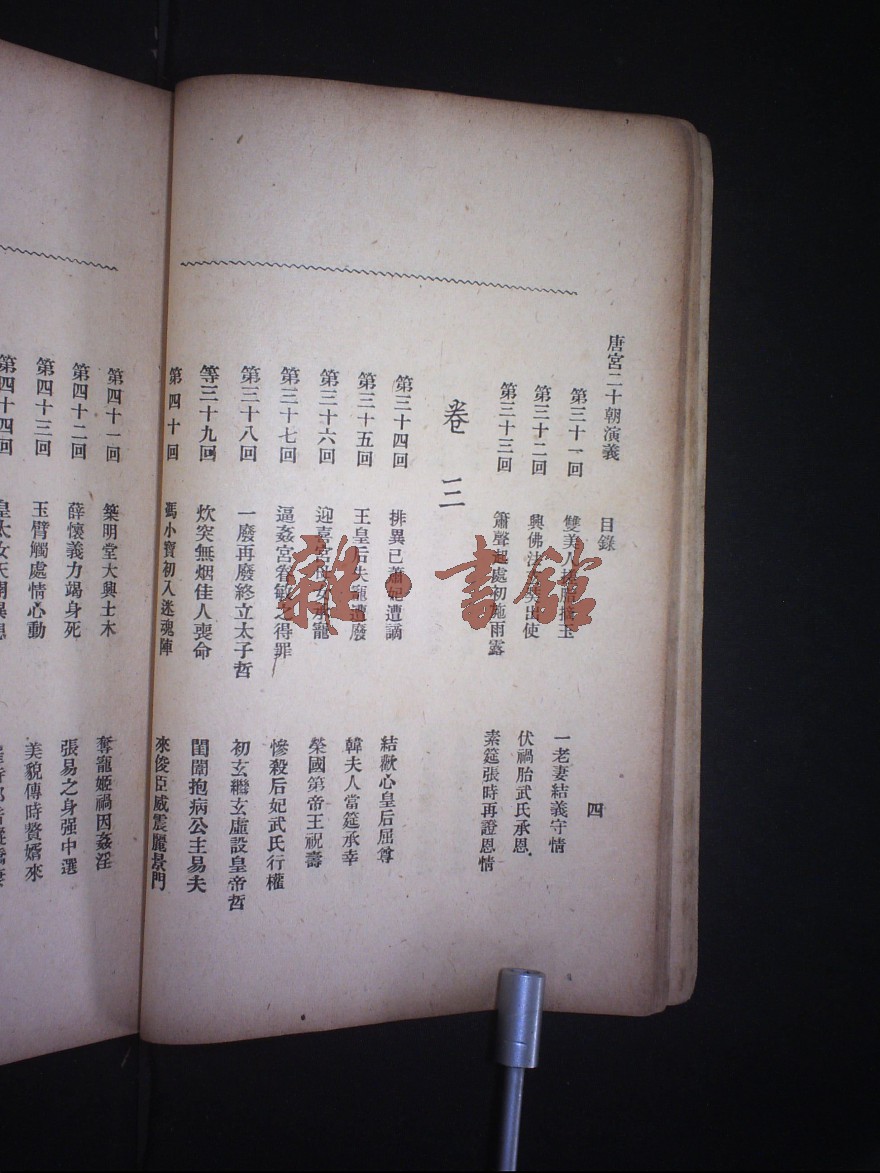 唐宮二十朝演義
目錄
四
第三十一回 雙美人 玉 一老妻結義守情
第三十二回 興佛法 出使 伏禍胎武氏承恩
第三十三回 簫聲起處初施雨露 素筵張時再證恩情
卷三
第三十四回 排異己蕭妃遭謫 結歡心皇后屈尊
第三十五回 王皇后失寵遭廢 韓夫人當筵承幸
第三十六回 迎嘉宮 承寵 榮國第帝王祝壽
第三十七回 逼姦宮眷敏之得罪 慘殺后妃武氏行權
第三十八回 一廢再廢終立太子哲 初玄繼玄虛設皇帝哲
等三十九回 炊突無烟佳人喪命 閨闈抱病公主易夫
第四十回 馮小寶初入迷魂陣 來俊臣威震麗景門
第四十一回 築明堂大興土木 奪寵姬禍因姦淫
第四十二回 薛懷義力竭身死 張易之身强中選
第四十三回 玉臂觸處情心動 美貌傳時贅婿來
第四十四回
雜·書館